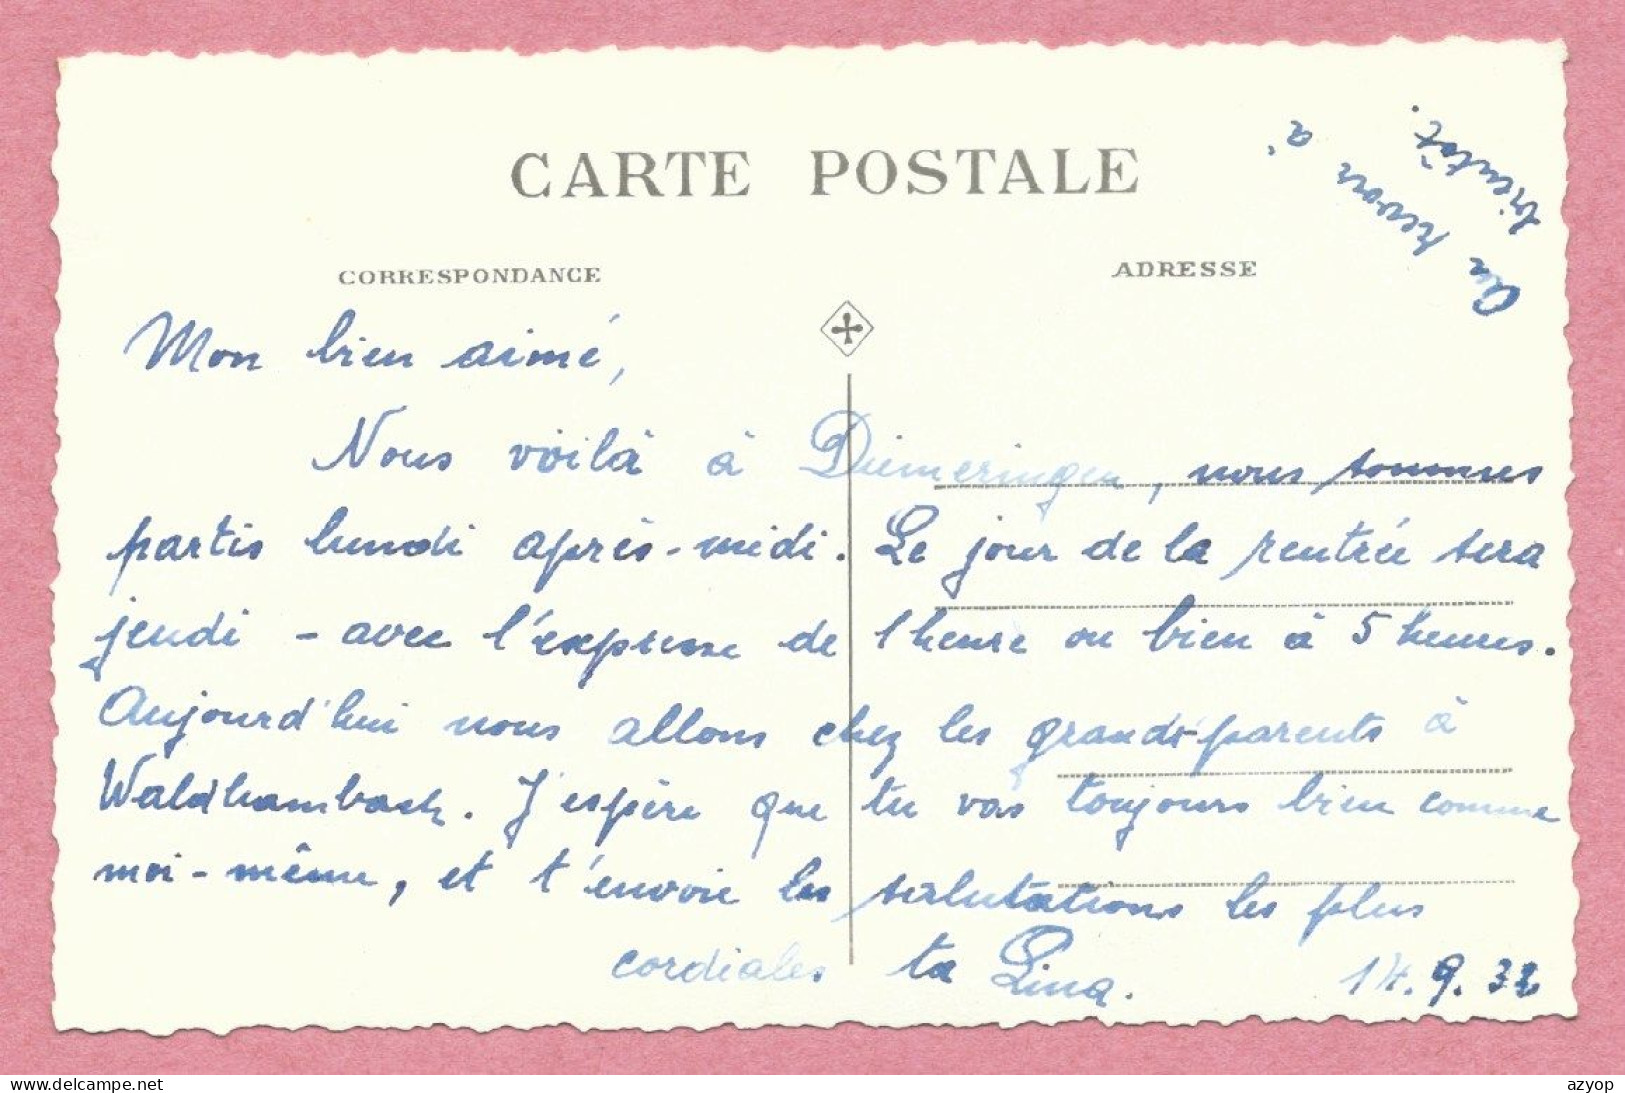 CARTE POSTALE
CORRESPONDANCE
ADRESSE
Au revoir à
bientôt.
Mon bien aimé,
Nous voilà à Diemeringen, nous sommes
partis lundi après-midi. Le jour de la rentrée sera
jeudi - avec l'expresse de 1 heure ou bien à 5 heures.
Aujourd'hui nous allons chez les grands-parents à
Waldhambach. J'espère que tu vas toujours bien comme
moi-même, et t'envoie les salutations les plus
cordiales ta Lina. 14.9.32
www.delcampe.net
azyop